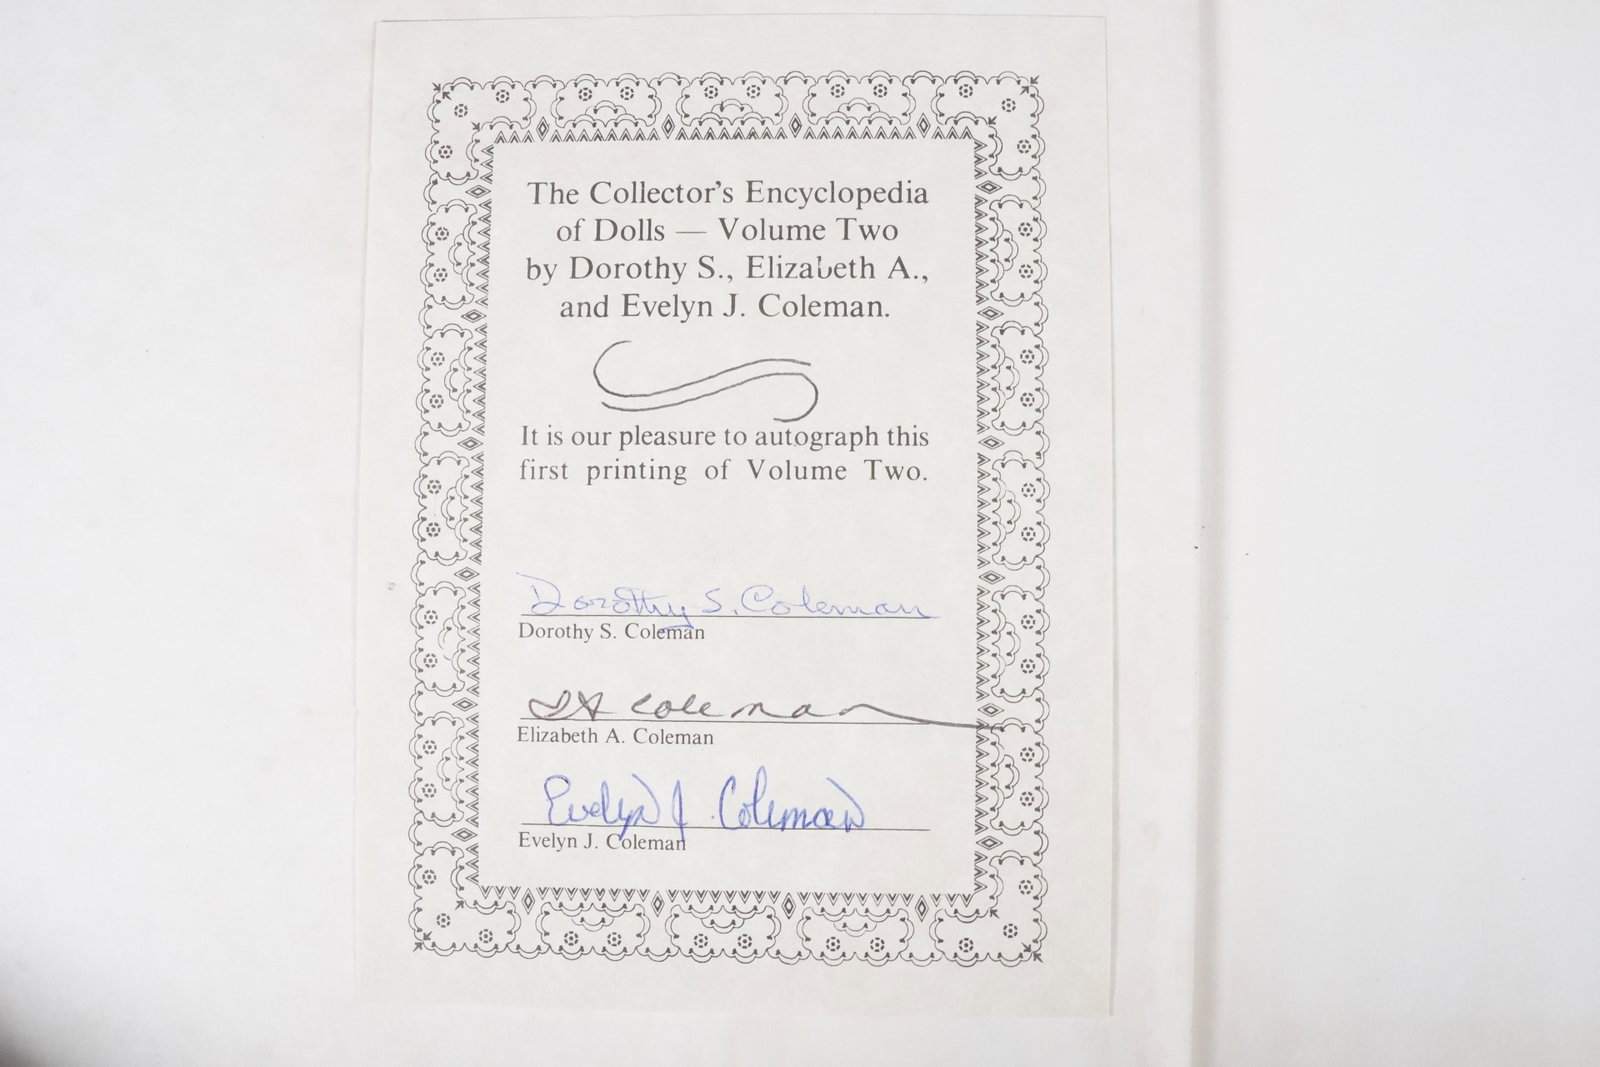 The Collector's Encyclopedia
of Dolls — Volume Two
by Dorothy S., Elizabeth A.,
and Evelyn J. Coleman.
It is our pleasure to autograph this
first printing of Volume Two.
Dorothy S. Coleman
Dorothy S. Coleman
EA Coleman
Elizabeth A. Coleman
Evelyn J. Coleman
Evelyn J. Coleman